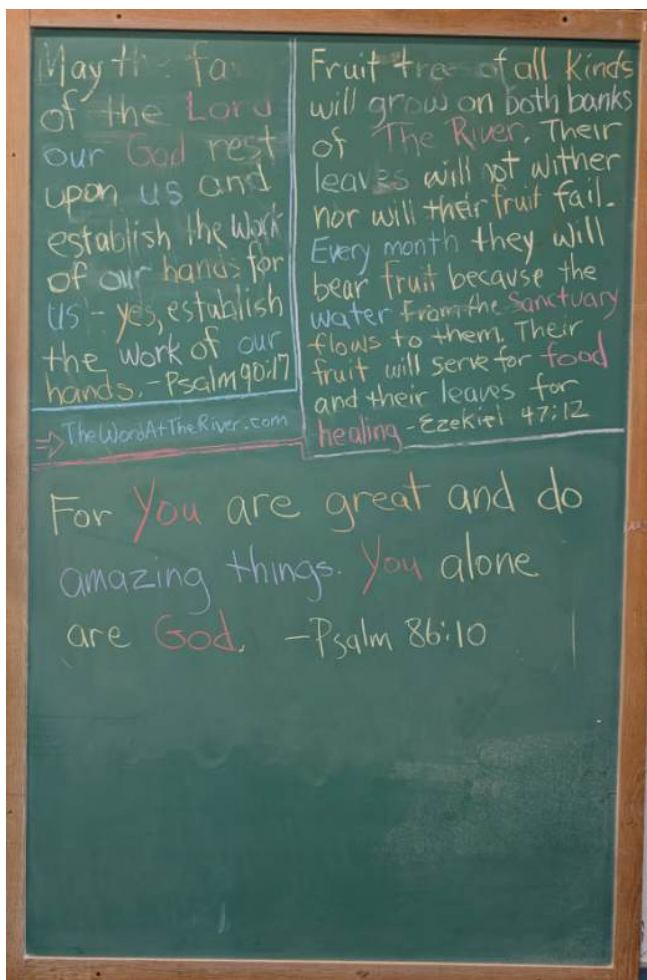 May the fa
of the Lord
our God rest
upon us and
establish the work
of our hands for
us - yes, establish
the work of our
hands. - Psalm 90:17
⇒ TheWordAtTheRiver.com
Fruit tree of all kinds
will grow on both banks
of The River. Their
leaves will not wither
nor will their fruit fail.
Every month they will
bear fruit because the
water from the sanctuary
flows to them. Their
fruit will serve for food
and their leaves for
healing - Ezekiel 47:12
For You are great and do
amazing things. You alone
are God. - Psalm 86:10